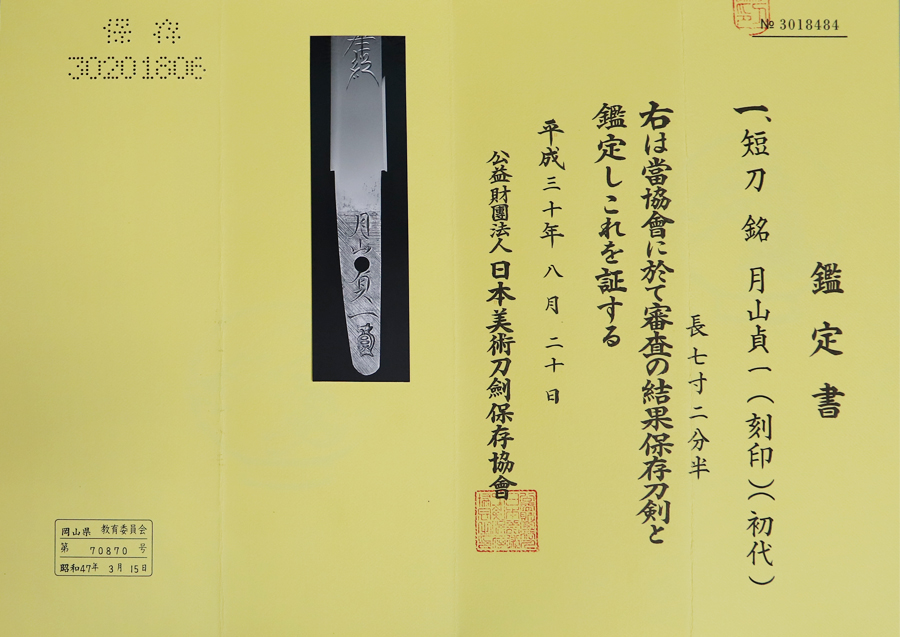 № 3018484
鑑定書
一、短刀 銘 月山貞一(刻印)(初代)
長七寸二分半
右は當協會に於て審査の結果保存刀剣と
鑑定しこれを証する
平成三十年八月二十日
公益財團法人日本美術刀劍保存協會
月山貞一
保存
30201806
岡山県 教育委員会
第 70870 号
昭和47年 3月 15日